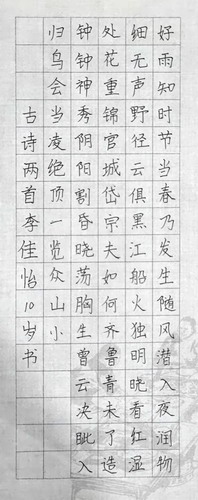 好雨知时节当春乃发生随风潜入夜润物
细无声野径云俱黑江船火独明晓看红湿
处花重锦官城岱宗夫如何齐鲁青未了造
钟钟神秀阴阳割昏晓荡胸生曾云决眦入
归鸟会当凌绝顶一览众山小
古诗两首李佳怡10岁书